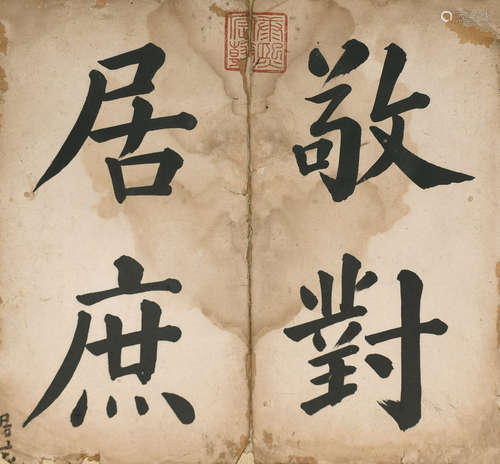 敬對
居庶